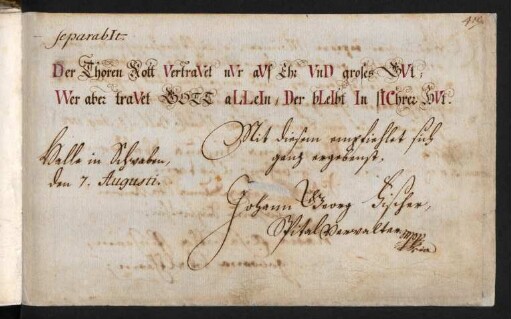 separabIt.
Der Thoren Rott VertraVet nVr aVf Ehr VnD groses GVt;
Wer aber traVet GOTT aLLeIn, Der bLeIbt In sIChrer HVt.
Mit diesem empfiehlet sich
ganz ergebenst,
Halle in Schwaben,
den 7. Augusti.
Johann Georg Fischer,
Spital Verwalter mpp